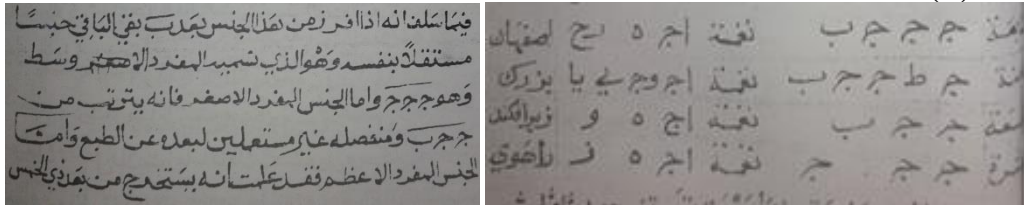 فيما سلف انه اذا فرز من هذا الجنس بعد ب بقي الباقي جنسا
مستقلا بنفسه وهو الذي نسميه المفرد الاوسط
وهو ج ج ج واما الجنس المفرد الاصغر فانه يترتب من
ج ج ب ومنفصله غير مستعملين لبعده عن الطبع واما
الجنس المفرد الاعظم فقد علمت انه يستخرج من بعد ذي الخمس
ج ج ج ب نغمة ا ج ه ح اصفهان
ج ط ج ج ب نغمة ا ج و ح ى يا بزرك
ج ج ب نغمة ا ج ه و زيرافكند
ج ج ج نغمة ا ج ه راهوي